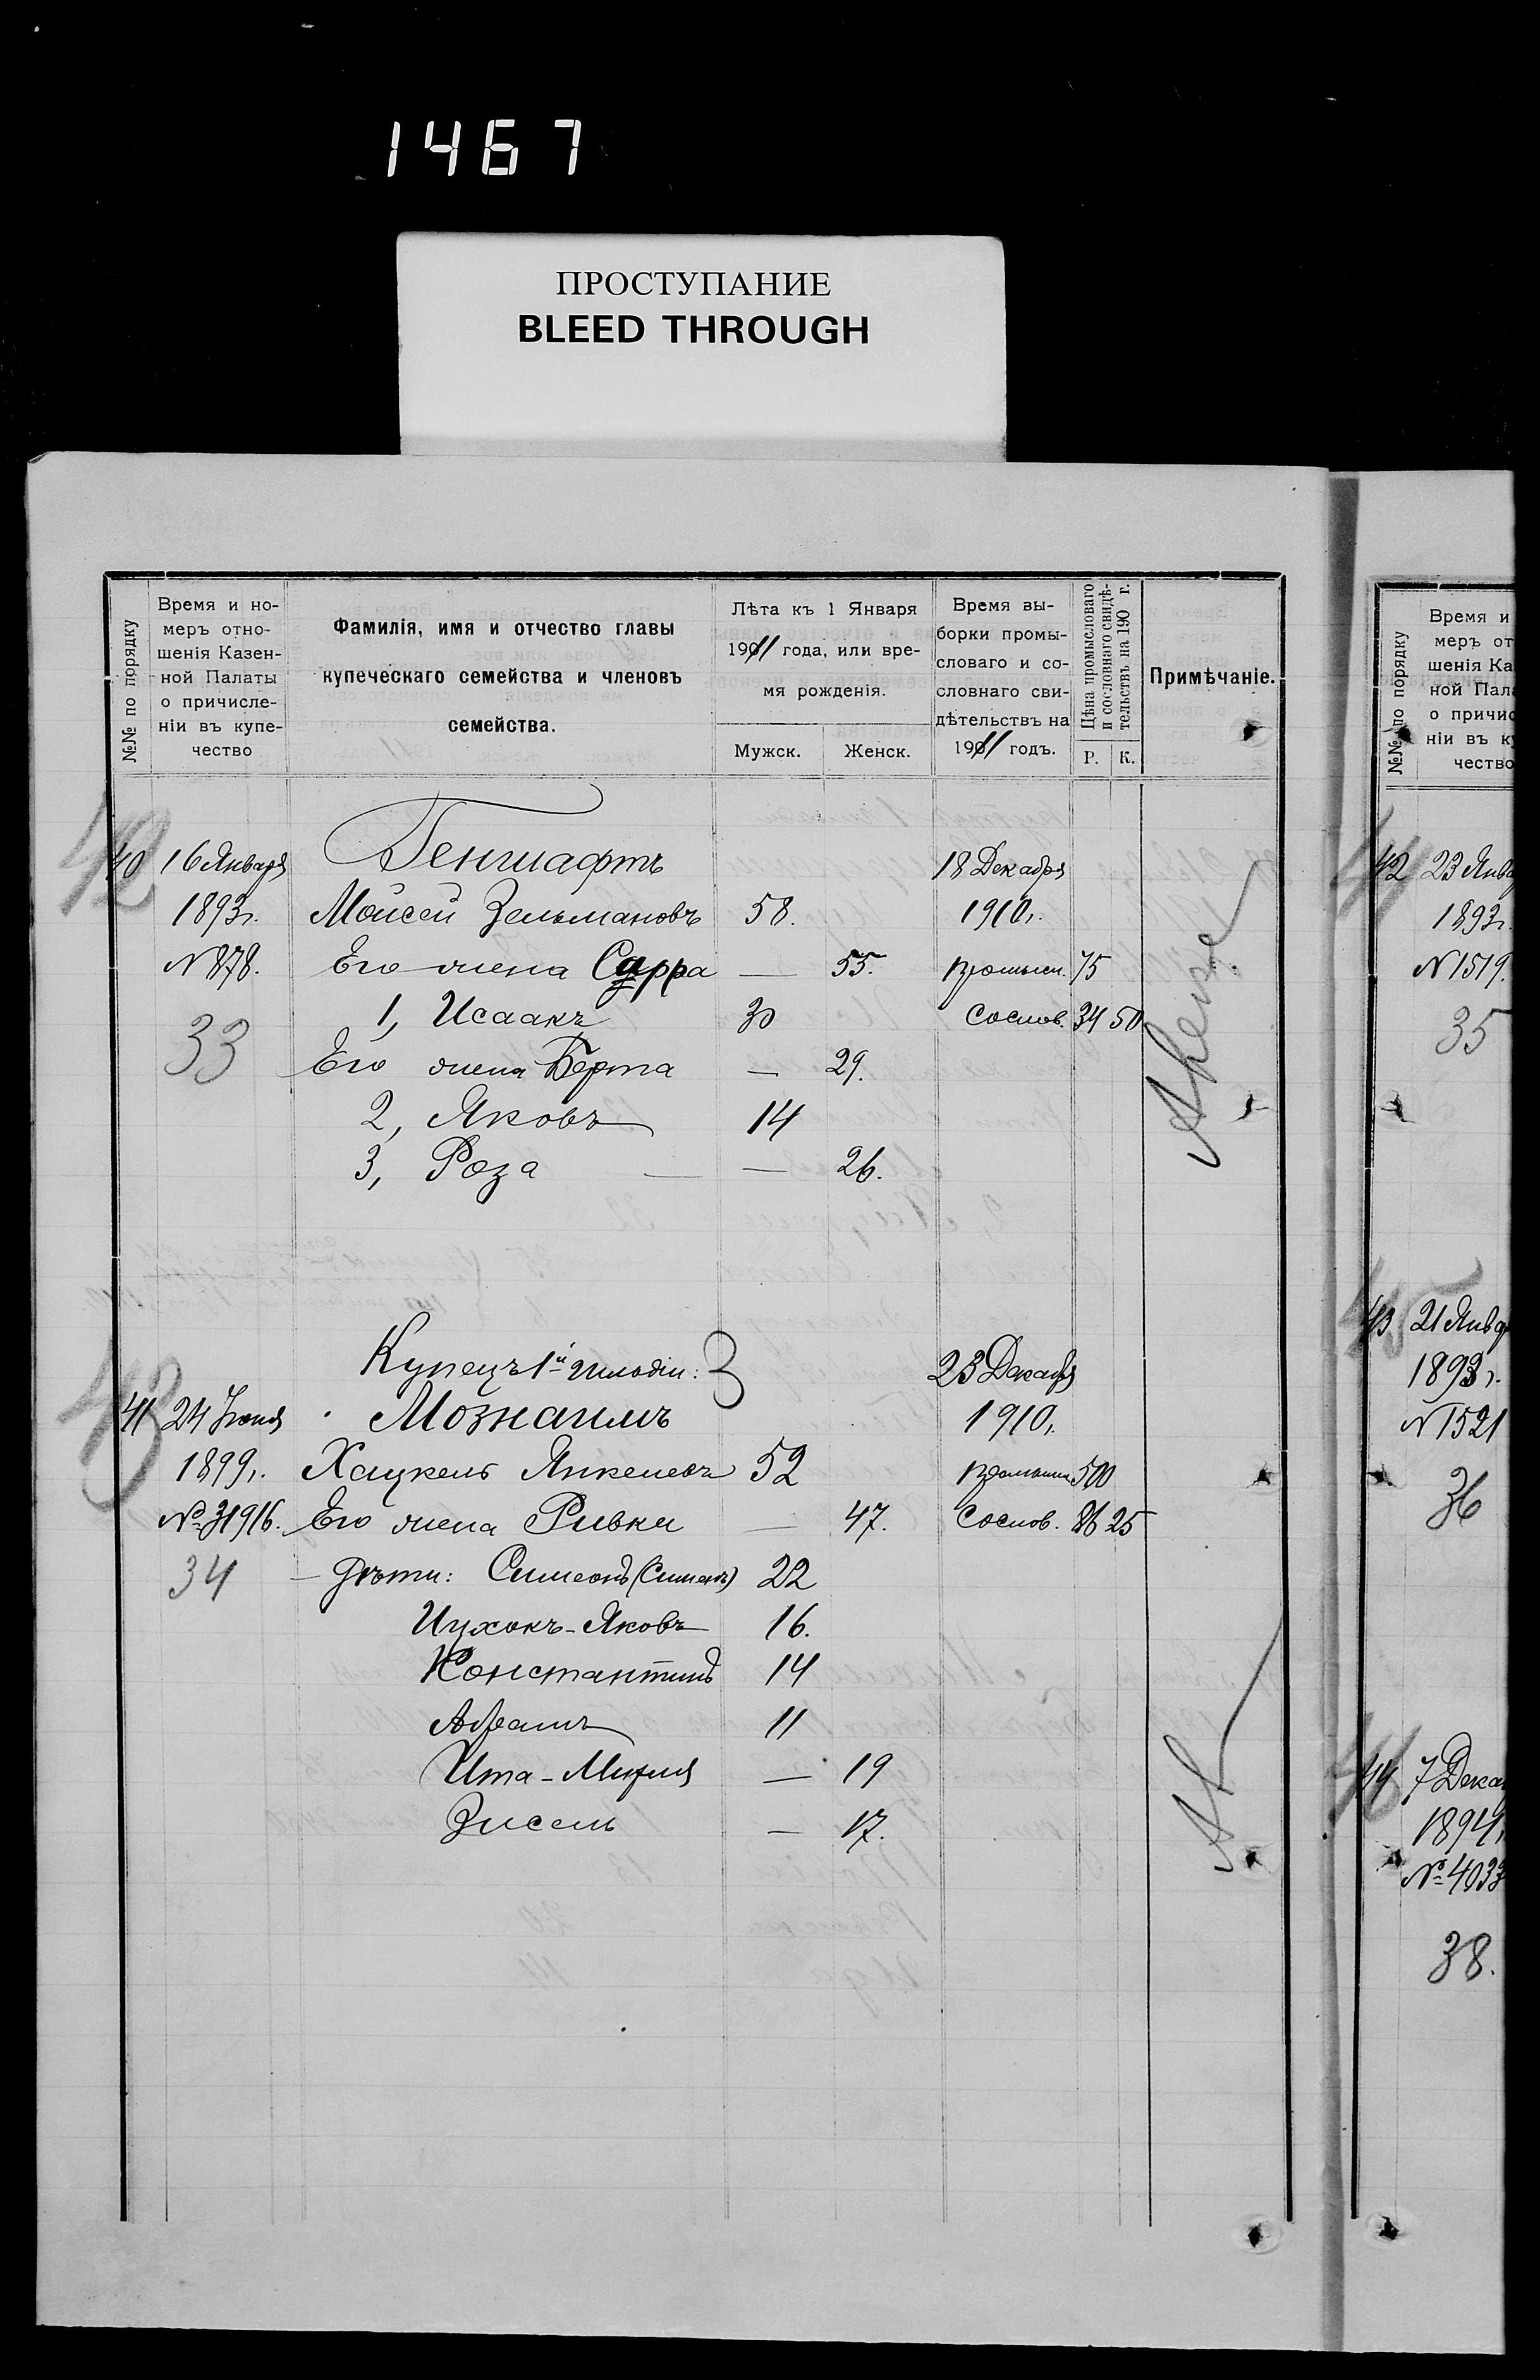 1467
ПРОСТУПАНИЕ
BLEED THROUGH
№№ по порядку
Время и но-
меръ отно-
шенія Казен-
ной Палаты
о причисле-
ніи въ купе-
чество
Фамилія, имя и отчество главы
купеческаго семейства и членовъ
семейства.
Лѣта къ 1 Января
1911 года, или вре-
мя рожденія.
Мужск. Женск.
Время вы-
борки промы-
словаго и со-
словнаго сви-
дѣтельствъ на
1911 годъ.
Цѣна промысловаго
и сословнаго свидѣ-
тельствъ на 190 г.
Р. К.
Примѣчаніе.
42
40 16 Января Геншафтъ 18 Декабря
1893 г. Мойсей Зельмановъ 58. 1910 г.
N 878. Его жена Сарра — 55. промысл. 75
33 1, Исаакъ 30 Сослов. 34 50
Его жена Берта — 29.
2, Яковъ 14
3, Роза — 26.
43
Купецъ 1й гильдіи: 3 23 Декабря
41 24 Іюня Мознаимъ 1910 г.
1899 г. Хацкель Янкелевъ 52 промысл. 500
№ 31916. Его жена Ривка — 47. Сослов. 86 25
34 Дѣти: Симеонъ (Симонъ) 22
Ицхокъ-Яковъ 16.
Константинъ 14
Абрамъ 11
Ита- — 19
Зисель — 17.
№№ по порядку
Время и
меръ от
шенія Ка
ной Пала
о причис
ніи въ к
чество
42 23 Янва
1893 г.
N 1519.
35
43 21 Янва
1893 г.
N 1521
36
44 7 Дека
1894 г.
№ 4033
38.